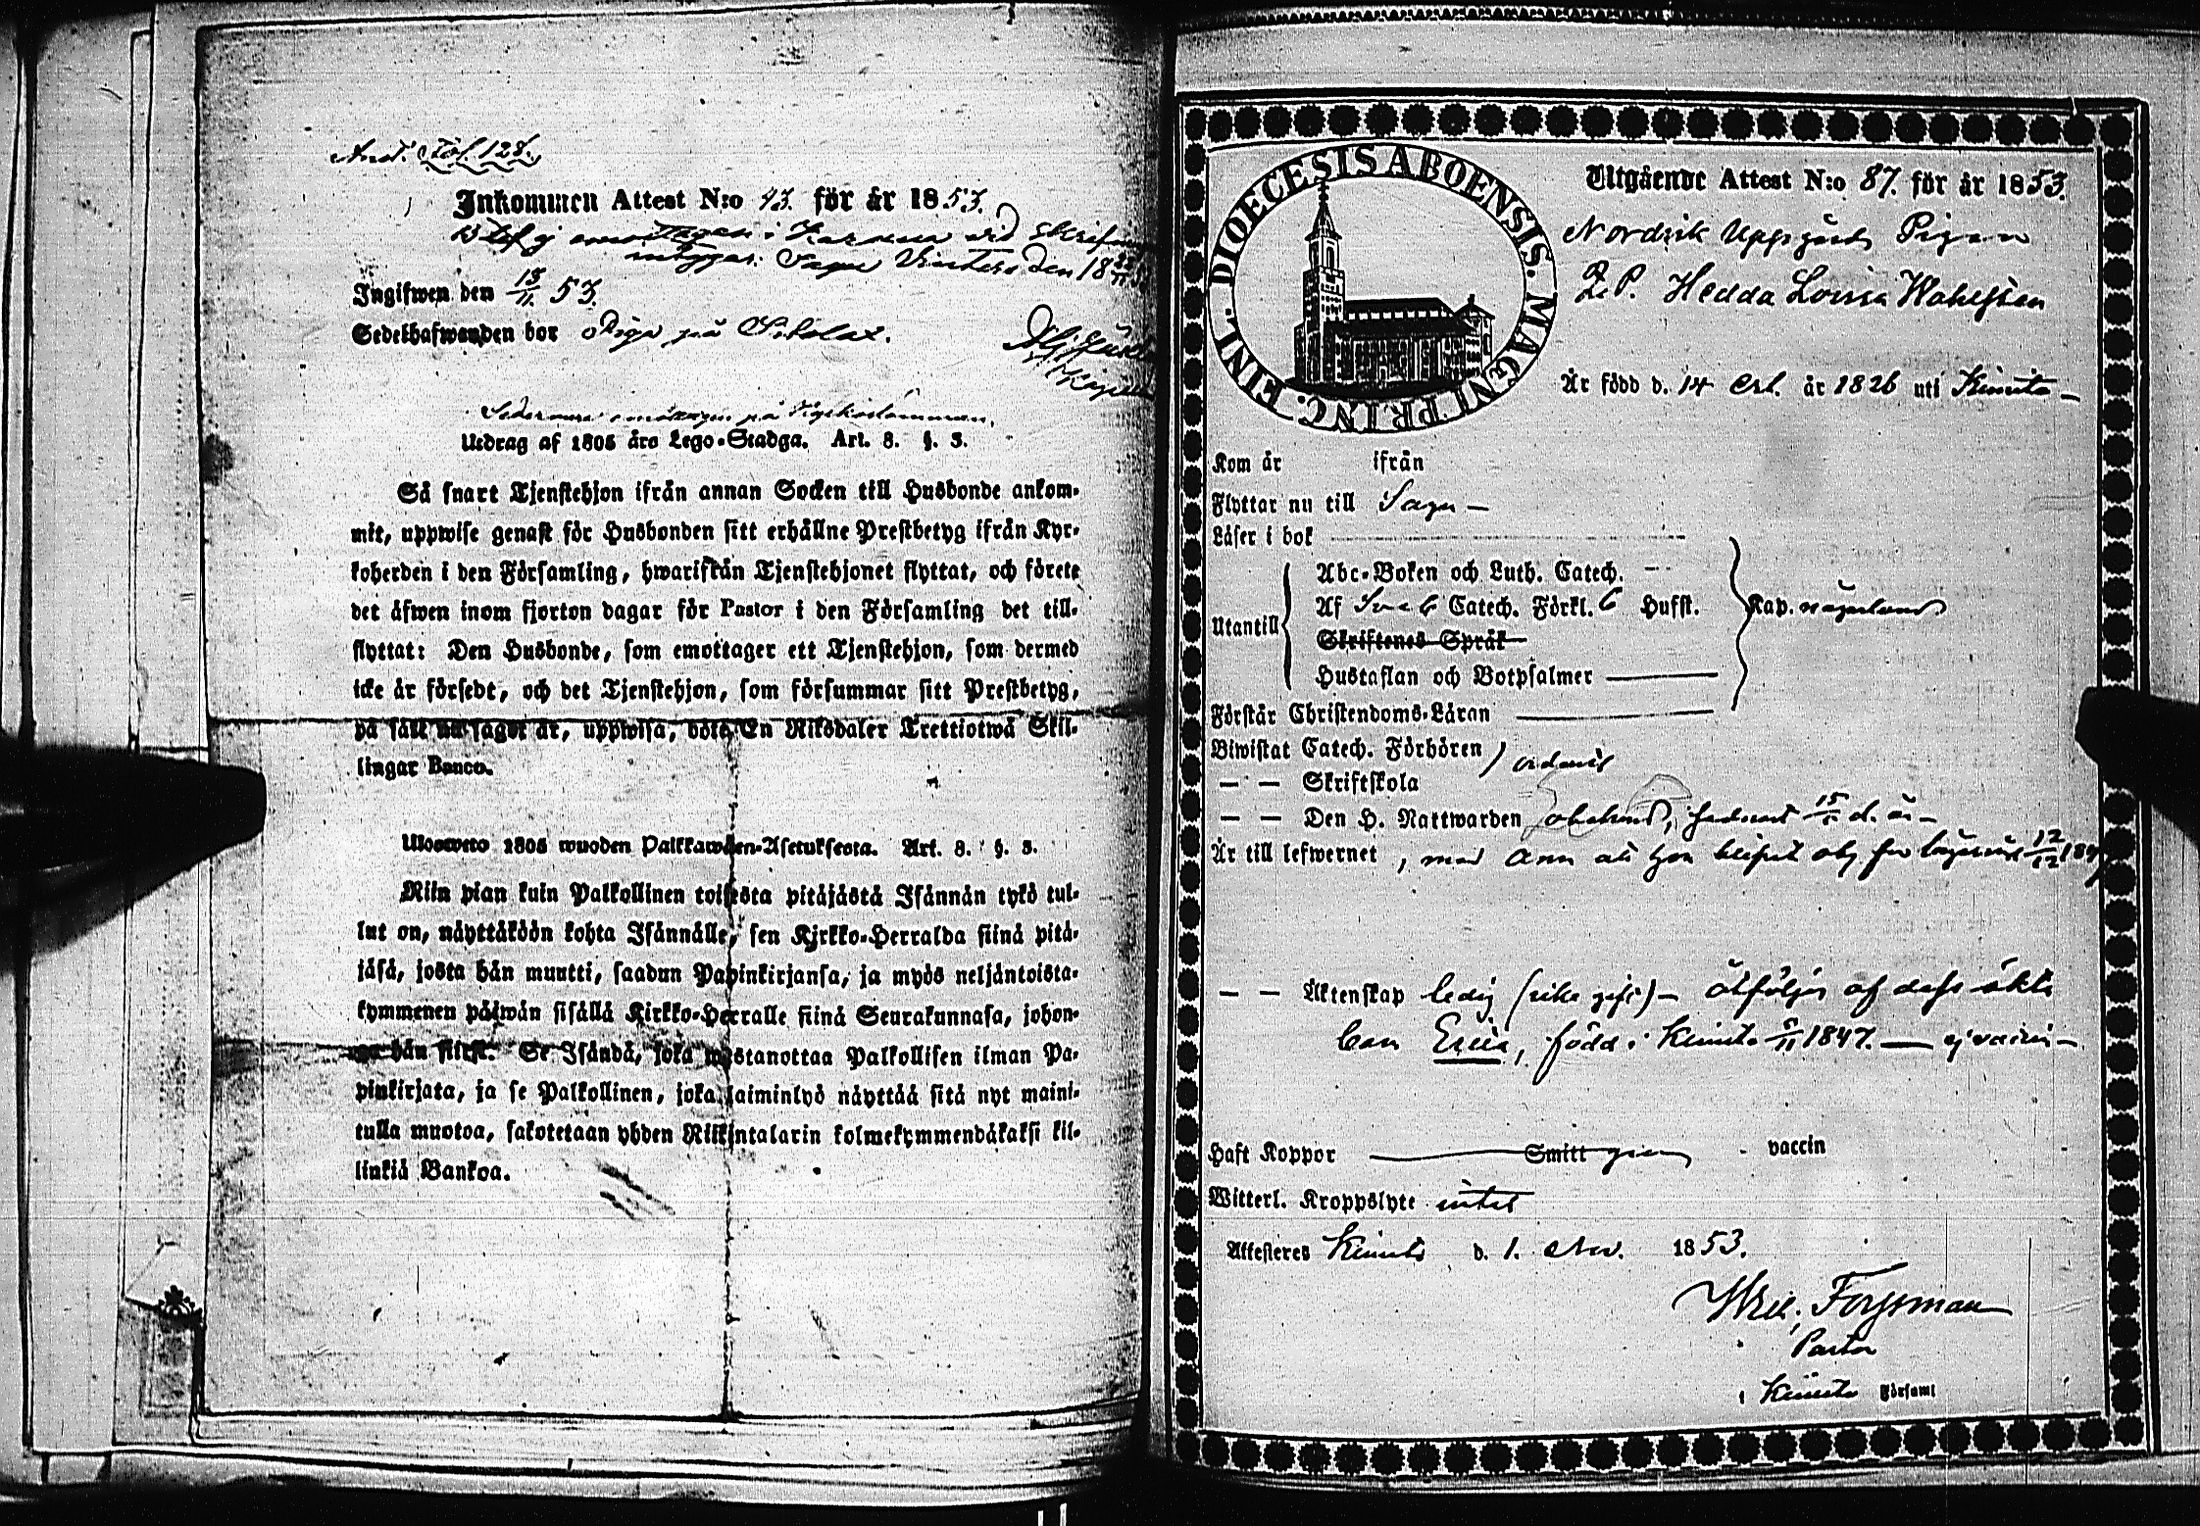 Fol. 128.
Inkommen Attest N:o 43. för år 1853.
Ingifwen den 13/11 53.
Sedelhafwanden bor Piga på
Utdrag af 1805 års Lego-Stadga. Art. 8. §. 3.
Så snart Tjenstehjon ifrån annan Socken till Husbonde ankom-
mit, uppwise genast för Husbonden sitt erhållne Prestbetyg ifrån Kyr-
koherden i den Församling, hwarifrån Tjenstehjonet flyttat, och förete
det äfwen inom fjorton dagar för Pastor i den Församling det till-
flyttat: Den Husbonde, som emottager ett Tjenstehjon, som dermed
icke är försedt, och det Tjenstehjon, som försummar sitt Prestbetyg,
på sätt nu sagdt är, uppwisa, böte En Riksdaler Trettiotwå Skil-
lingar Banco.
Ulosweto 1805 wuoden Palkkawäen-Asetuksesta. Art. 8. §. 3.
Niin pian kuin Palkollinen toisesta pitäjästä Isännän tykö tul-
lut on, näyttäköön kohta Isännälle, sen Kirkko-Herralda siinä pitä-
jäsä, josta hän muutti, saadun Papinkirjansa, ja myös neljäntoista-
kymmenen päiwän sisällä Kirkko-Herralle siinä Seurakunnasa, johon-
ga hän siirst. Se Isändä, joka wastanottaa Palkollisen ilman Pa-
pinkirjata, ja se Palkollinen, joka laiminlyö näyttää sitä nyt maini-
tulla muotoa, sakotetaan yhden Riikintalarin kolmekymmendäkaksi kil-
linkiä Bankoa.
DIOECESIS ABOENSIS. MAGNI PRINC. FINL.
Utgående Attest N:o 87. för år 1853.
Nordvik Uppgårds Pigan
Hedda Lovisa Wahlsten
Är född d. 14 år 1826 uti Kimito
Kom år ifrån
Flyttar nu till Sagu
Läser i bok
Utantill
Abc-Boken och Luth. Catech.
Af Sveb. Catech. Förkl. 6 Hufst.
Skriftenes Språk
Hustaflan och Botpsalmer
Kap. någorlunda
Förstår Christendoms-Läran
Biwistat Catech. Förhören
— — Skriftskola
ordentl
— — Den H. Nattwarden
Är till lefwernet
— — Äktenskap ledig (icke gift) — åtföljes af dess oäkta
barn Erica, född i Kimito 1847. — ej vaccin
Haft Koppor Smitt vaccin
Witterl. Kroppslyte intet
Attesteres Kimito d. 1. Nov. 1853.
Forssman
Pastor
i Kimito Församl